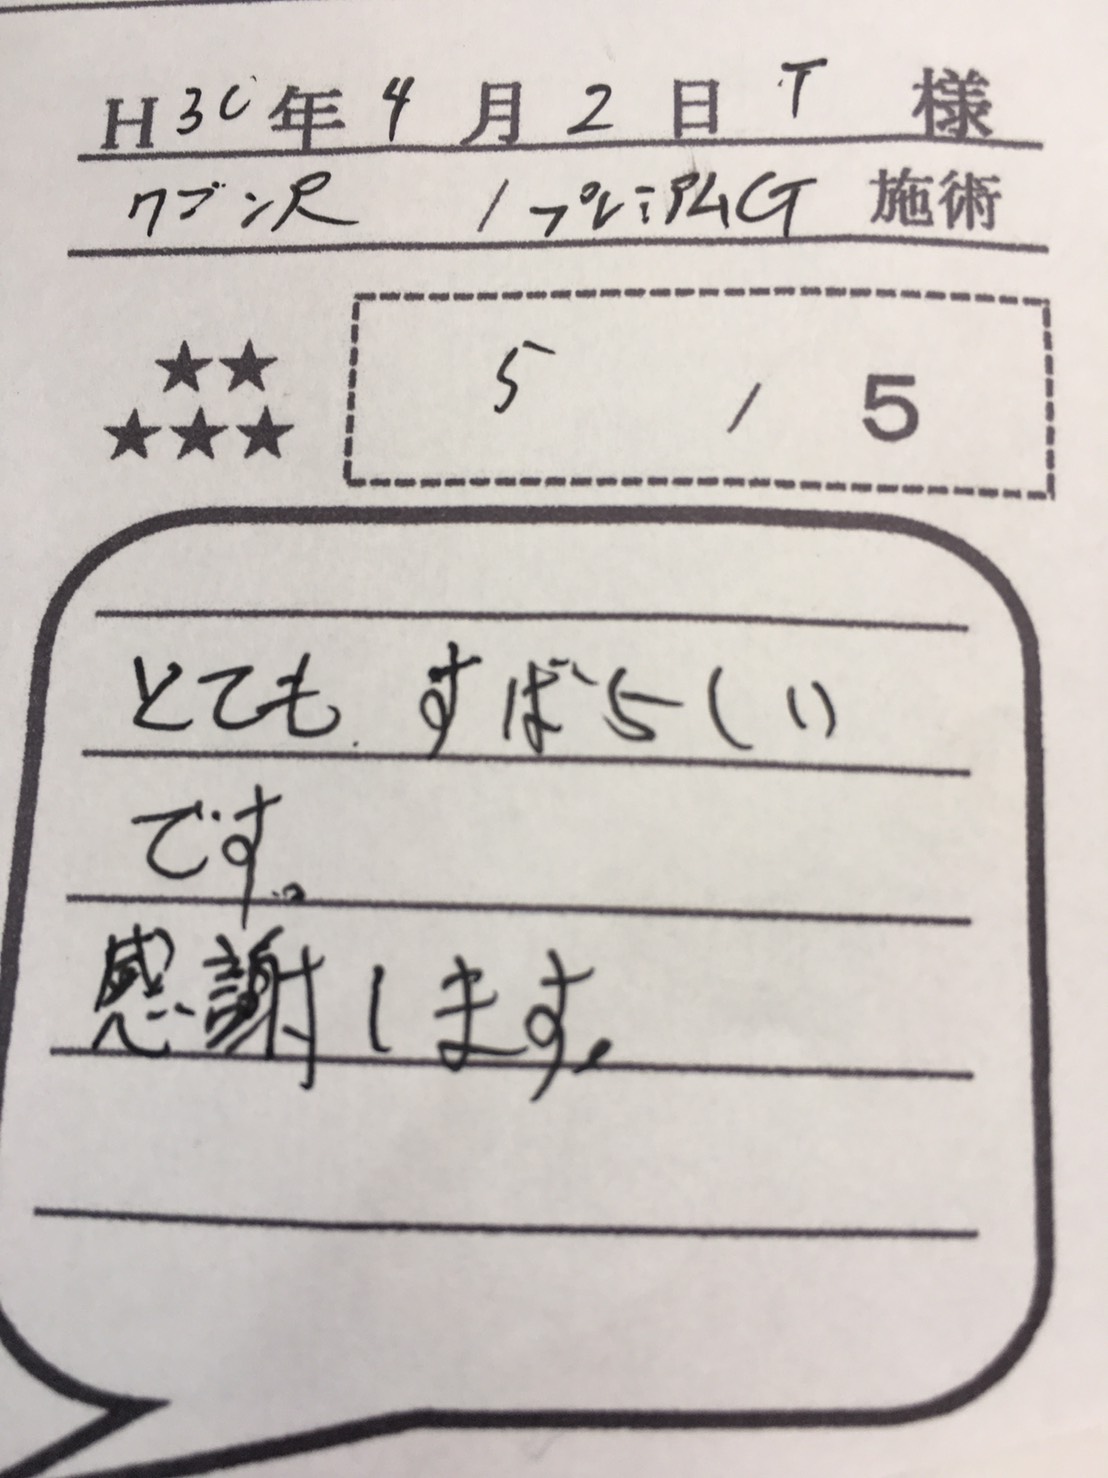 H30年4月2日 T 様
ワゴンR / プレミアムG 施術
★★
★★★
5 / 5
とても すばらしい
です。
感謝します。